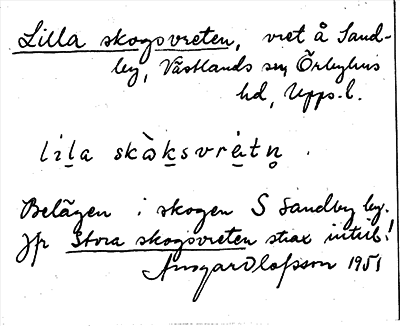 Lilla skogsvreten, vret å Sand-
by, Västlands sn, Örbyhus
hd, Upps. l.
lila skòksvrètn̥ .
Belägen i skogen S Sandby by.
Jfr Stora skogsvreten strax intill!
Ansgar Olofsson 1951